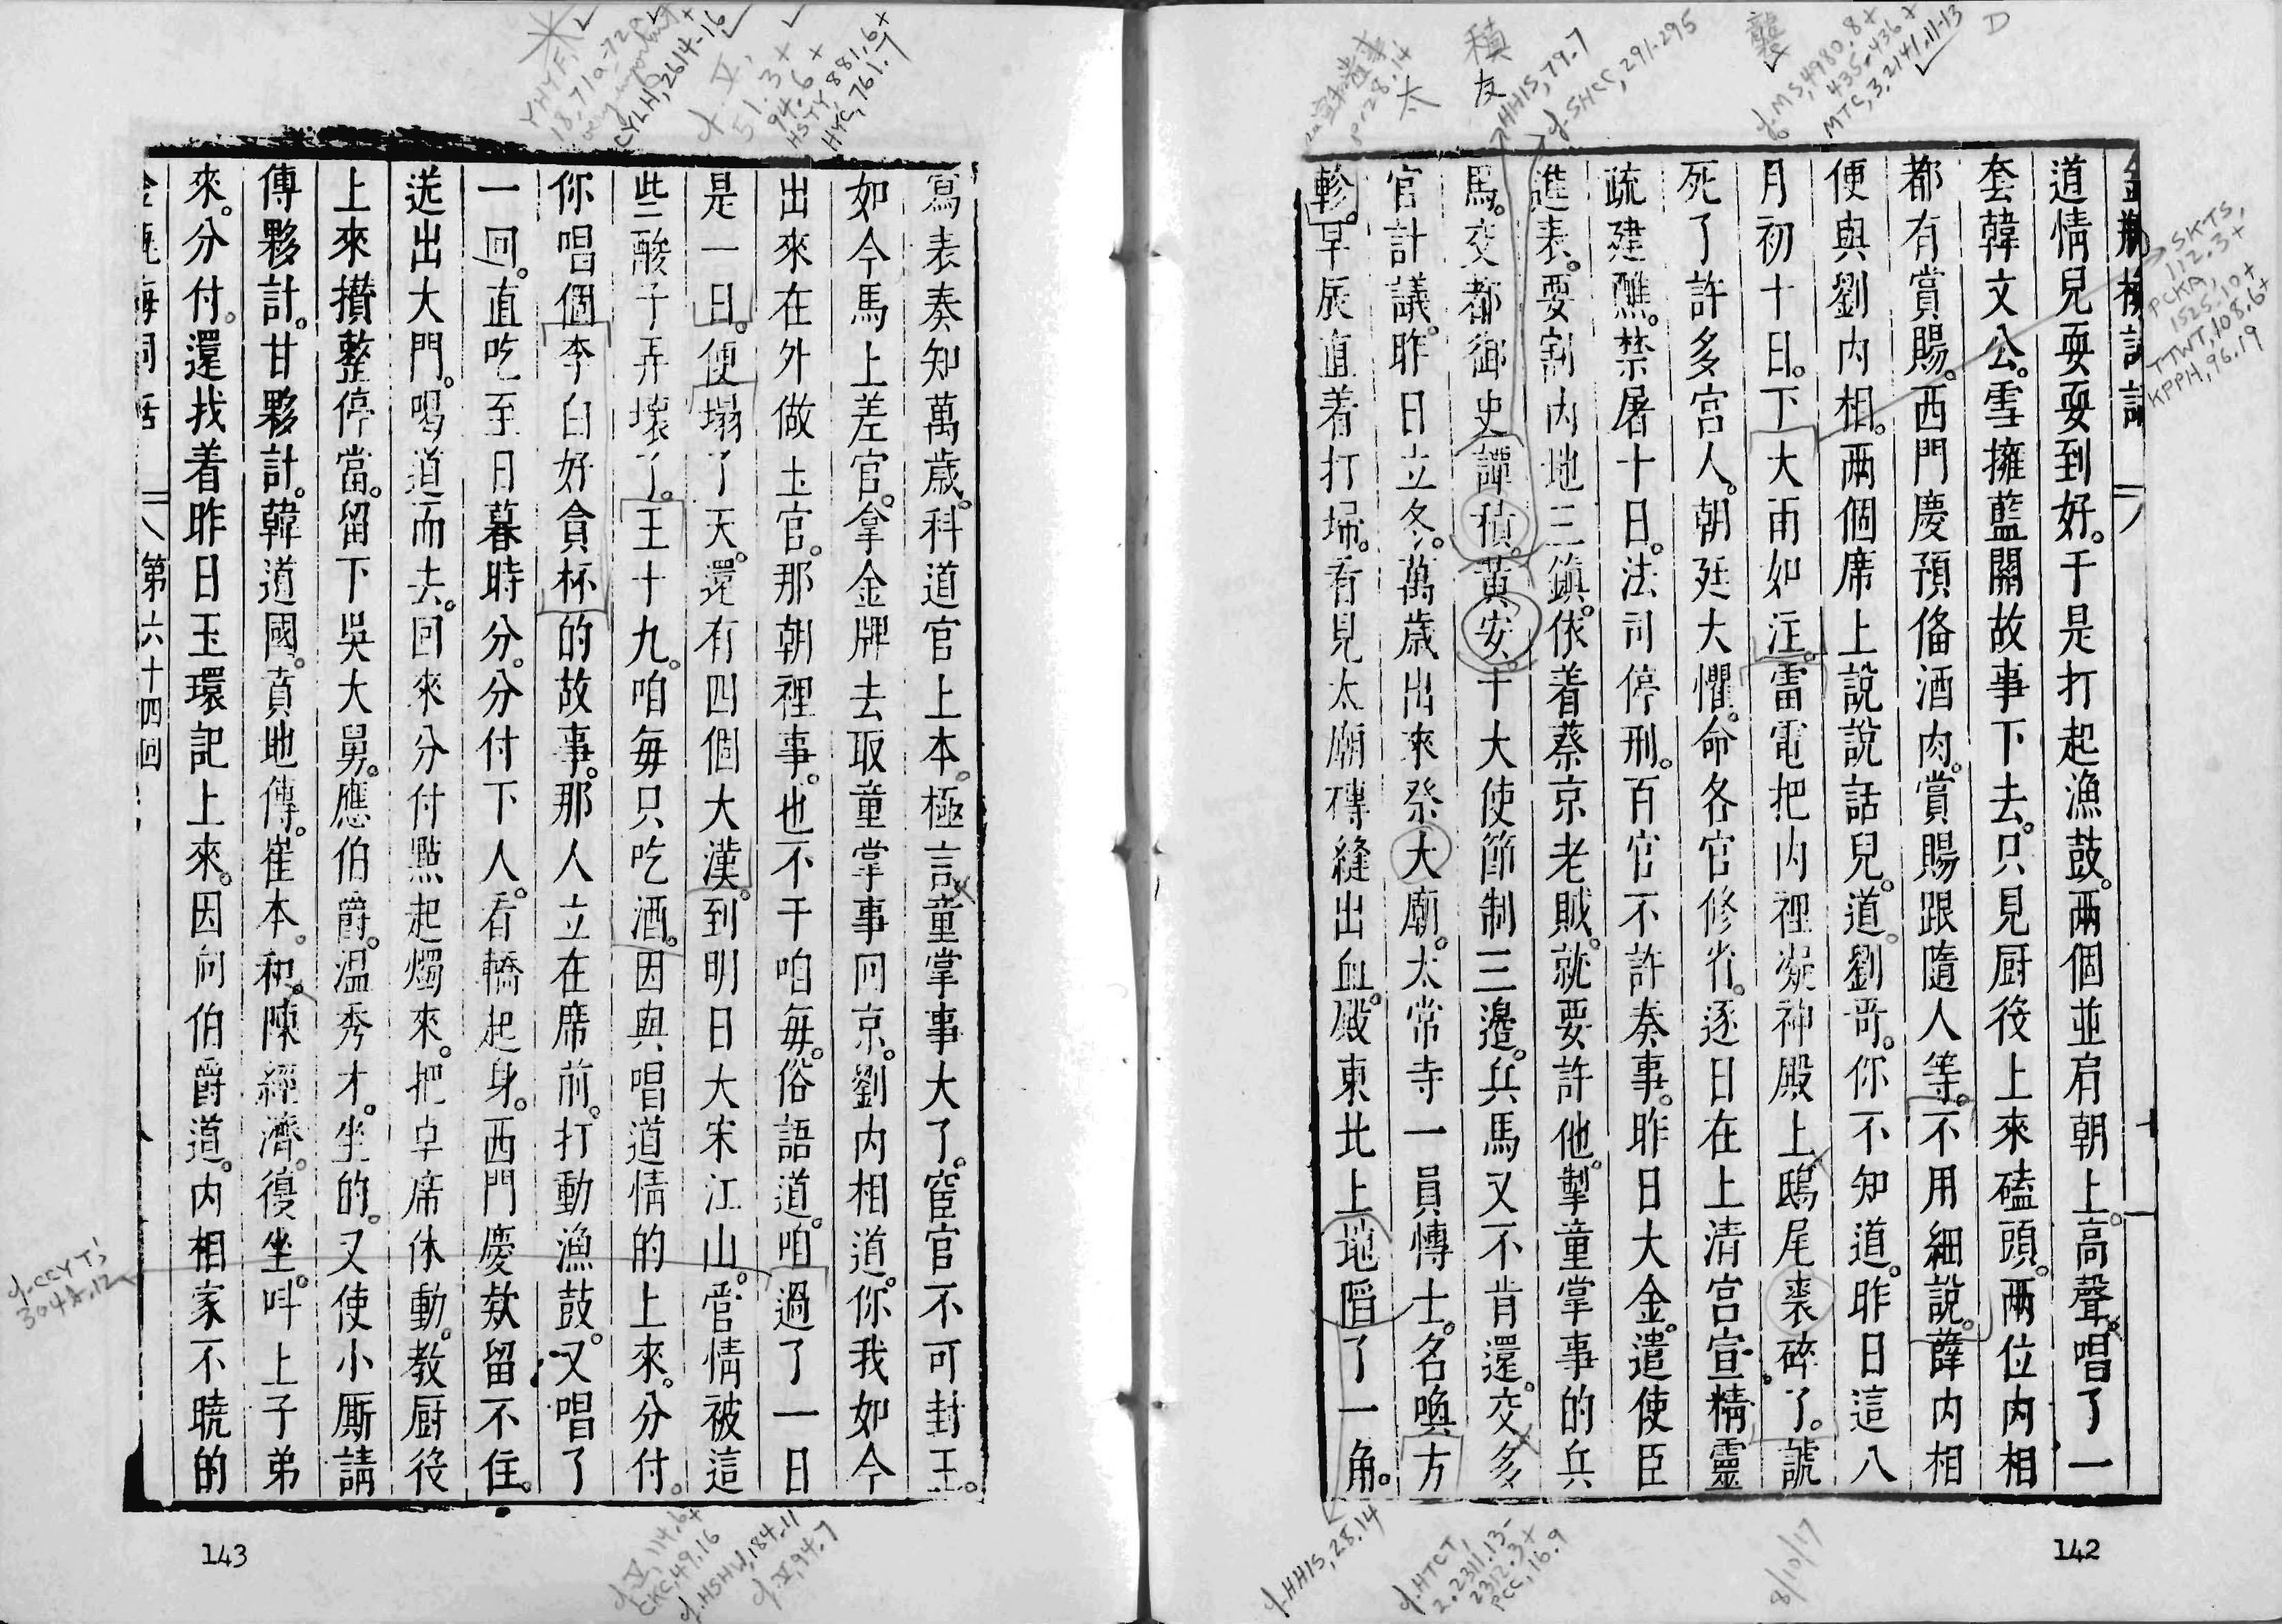 道情兒耍耍到好。于是打起漁鼓。兩個並肩朝上。高聲唱了一
套韓文公。雪擁藍關故事下去。只見厨役上來磕頭。两位内相
都有賞賜。西門慶預俻酒肉。賞賜跟隨人等。不用細說。薛内相
便與劉内相。兩個席上說說話兒。道。劉哥。你不知道。昨日這八
月初十日。下大雨如注。雷電把内裡凝神殿上鴟尾裘碎了。諕
死了許多宮人。朝廷大懼。命各官修省。逐日在上清宮宣精靈
疏建醮。禁屠十日。法司停刑。百官不許奏事。昨日大金。遣使臣
進表。要割内地三鎮。依着蔡京老賊。就要許他。掣童掌事的兵
馬。交都御史譚積。黃安。十大使節制三邊。兵馬又不肯還。交多
官計議。昨日立冬。萬歲出來祭大廟。太常寺一員博士。名喚方
軫。早辰直着打埽。看見太廟磚縫出血。殿東北上地陷了一角。
金瓶梅詞話
8/10/17
142
寫表奏知萬歲。科道官上本。極言童掌事大了。宦官不可封王。
如今馬上差官。拿金牌去取童掌事囘京。劉内相道。你我如今
出來在外做土官。那朝裡事。也不干咱每。俗語道。咱過了一日
是一日。便塌了天。還有四個大漢。到明日大宋江山。管情被這
些酸子弄壞了。王十九。咱每只吃酒。因與唱道情的上來。分付。
你唱個李白好貪杯的故事。那人立在席前。打動漁鼓。又唱了
一回。直吃至日暮時分。分付下人。看轎起身。西門慶欵留不住。
送出大門。喝道而去。回來分付點起燭來。把卓席休動。教厨役
上來攢整停當。留下吳大舅。應伯爵。溫秀才。坐的。又使小厮請
傅夥計。甘夥計。韓道國。賁地傳。崔本。和陳經濟。復坐。叫上子弟
來。分付。還找着昨日玉環記上來。因向伯爵道。内相家不曉的
金瓶梅詞話
第六十四回
143
太
積
友
HHIS, 79.7
cf. SHCC, 291-295
cf. MS, 4980.8+
435-436+
MTC, 3.2141.11-13
D
SKTS,
112.3+
PCKA,
1525.10+
TTWT, 108.6+
KPPH, 96.19
cf. HHIS, 28.14
cf. HTCT,
2.2311.13-
2312.3+
PCC, 16.9
YHYF,
18.71a-72a
CYLH, 2614-16
cf. II,
51.3+
94.6+
HSTY, 881.6+
HYC, 761.7
cf. CCYT,
304A.12
CKC, 49.16
cf. HSHW, 184.11